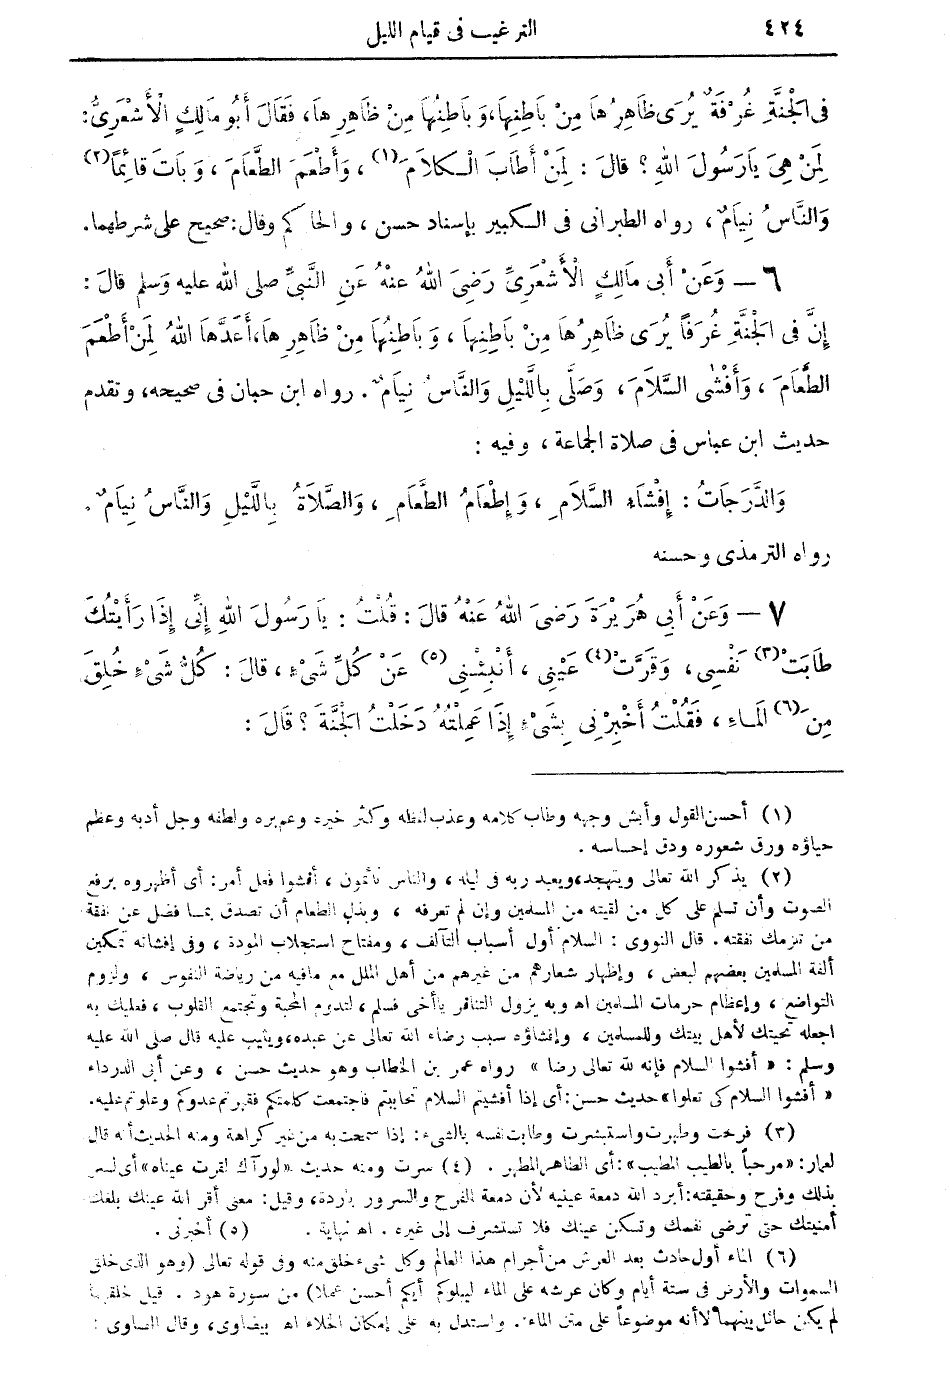 ٤٢٤
الترغيب فى قيام الليل
فى الْجَنَّةِ غُرْفَةٌ يُرَى ظَاهِرُهَا مِنْ بَاطِنِهَا، وَبَاطِنُهَا مِنْ ظَاهِرِهَا، فَقَالَ أَبُو مَالِكٍ الْأَشْعَرِىُّ:
لِمَنْ هِىَ يَارَسُولَ اللهِ ؟ قالَ : لِمَنْ أَطَابَ الْكَلَامَ (١) ، وَأَطْعَمَ الطَّعَامَ ، وَبَاتَ قَائِمًا (٢)
وَالنَّاسُ نِيَامٌ ، رواه الطبرانى فى الكبير بإسناد حسن ، والحاكم وقال: صحيح على شرطهما.
٦ — وَعَنْ أَبِى مَالِكٍ الْأَشْعَرِىِّ رَضِىَ اللهُ عنْهُ عَنِ النَّبِىِّ صلى الله عليه وَسلم قالَ :
إِنَّ فى الْجَنَّةِ غُرَفًا يُرَى ظَاهِرُهَا مِنْ بَاطِنِهَا ، وَبَاطِنُهَا مِنْ ظَاهِرِهَا، أَعَدَّهَا اللهُ لِمَنْ أَطْعَمَ
الطَّعَامَ ، وَأَفْشَى السَّلَامَ ، وَصَلَّى بِاللَّيْلِ وَالنَّاسُ نِيَامٌ . رواه ابن حبان فى صحيحه، وتقدم
حديث ابن عباس فى صلاة الجماعة ، وفيه :
وَالدَّرَجَاتُ : إِفْشَاءُ السَّلَامِ ، وَإِطْعَامُ الطَّعَامِ ، وَالصَّلَاةُ بِاللَّيْلِ وَالنَّاسُ نِيَامٌ .
رواه الترمذى وحسنه
٧ — وَعَنْ أَبِى هُرَيْرَةَ رَضِىَ اللهُ عَنْهُ قالَ : قُلْتُ : يَارَسُولَ اللهِ إِنِّى إِذَا رَأَيْتُكَ
طَابَتْ (٣) نَفْسِى، وَقَرَّتْ (٤) عَيْنِى ، أَنْبِئْنِى (٥) عَنْ كُلِّ شَىْءٍ ، قالَ : كُلُّ شَىْءٍ خُلِقَ
مِنَ (٦) الْمَاءِ ، فَقُلْتُ أَخْبِرْنِى بِشَىْءٍ إِذَا عَمِلْتُهُ دَخَلْتُ الْجَنَّةَ ؟ قَالَ :
(١) أحسن القول وأبش وجهه وطاب كلامه وعذب لفظه وكثر خيره وعم بره ولطفه وجل أدبه وعظم
حياؤه ورق شعوره ودق إحساسه .
(٢) يذكر الله تعالى ويتهجد، ويعبد ربه فى ليله ، والناس نائمون ، أفشوا فعل أمر: أى أظهروه برفع
الصوت وأن تسلم على كل من لقيته من المسلمين وإن لم تعرفه ، وبذل الطعام أن تصدق بما فضل عن نفقة
من تلزمك نفقته . قال النووى : السلام أول أسباب التآلف ، ومفتاح استجلاب المودة ، وفى إفشائه تمكين
ألفة المسلمين بعضهم لبعض ، وإظهار شعارهم من غيرهم من أهل الملل مع مافيه من رياضة النفوس ، ولزوم
التواضع ، وإعظام حرمات المسلمين اه وبه يزول التنافر ياأخى فسلم ، لتدوم المحبة وتجتمع القلوب ، فعليك به
اجعله تحيتك لأهل بيتك وللمسلمين ، وإفشاؤه سبب رضاء الله تعالى عن عبده، ويثيب عليه قال صلى الله عليه
وسلم : « أفشوا السلام فإنه لله تعالى رضا » رواه عمر بن الخطاب وهو حديث حسن ، وعن أبى الدرداء
« أفشوا السلام كى تعلوا » حديث حسن: أى إذا أفشيتم السلام تحاببتم فاجتمعت كلمتكم فقهرتم عدوكم وعلوتم عليه.
(٣) فرحت وطهرت واستبشرت وطابت نفسه بالشىء: إذا سمحت به من غير كراهة ومنه الحديث أنه قال
لعمار: «مرحباً بالطيب المطيب»: أى الطاهر المطهر . (٤) سرت ومنه حديث «لورآك لقرت عيناه» أى لسر
بذلك وفرح وحقيقته: أبرد الله دمعة عينيه لأن دمعة الفرح والسرور باردة، وقيل: معنى أقر الله عينك بلغك
أمنيتك حتى ترضى نفسك وتسكن عينك فلا تستشرف إلى غيره . اه نهاية . (٥) أخبرنى .
(٦) الماء أول حادث بعد العرش من أجرام هذا العالم وكل شىء خلق منه وفى قوله تعالى (وهو الذى خلق
السموات والأرض فى ستة أيام وكان عرشه على الماء ليبلوكم أيكم أحسن عملا) من سورة هود . قيل خلقهما
لم يكن حائل بينهما لاأنه موضوعاً على متن الماء. واستدل به على إمكان الخلاء اه بيضاوى، وقال الصاوى :